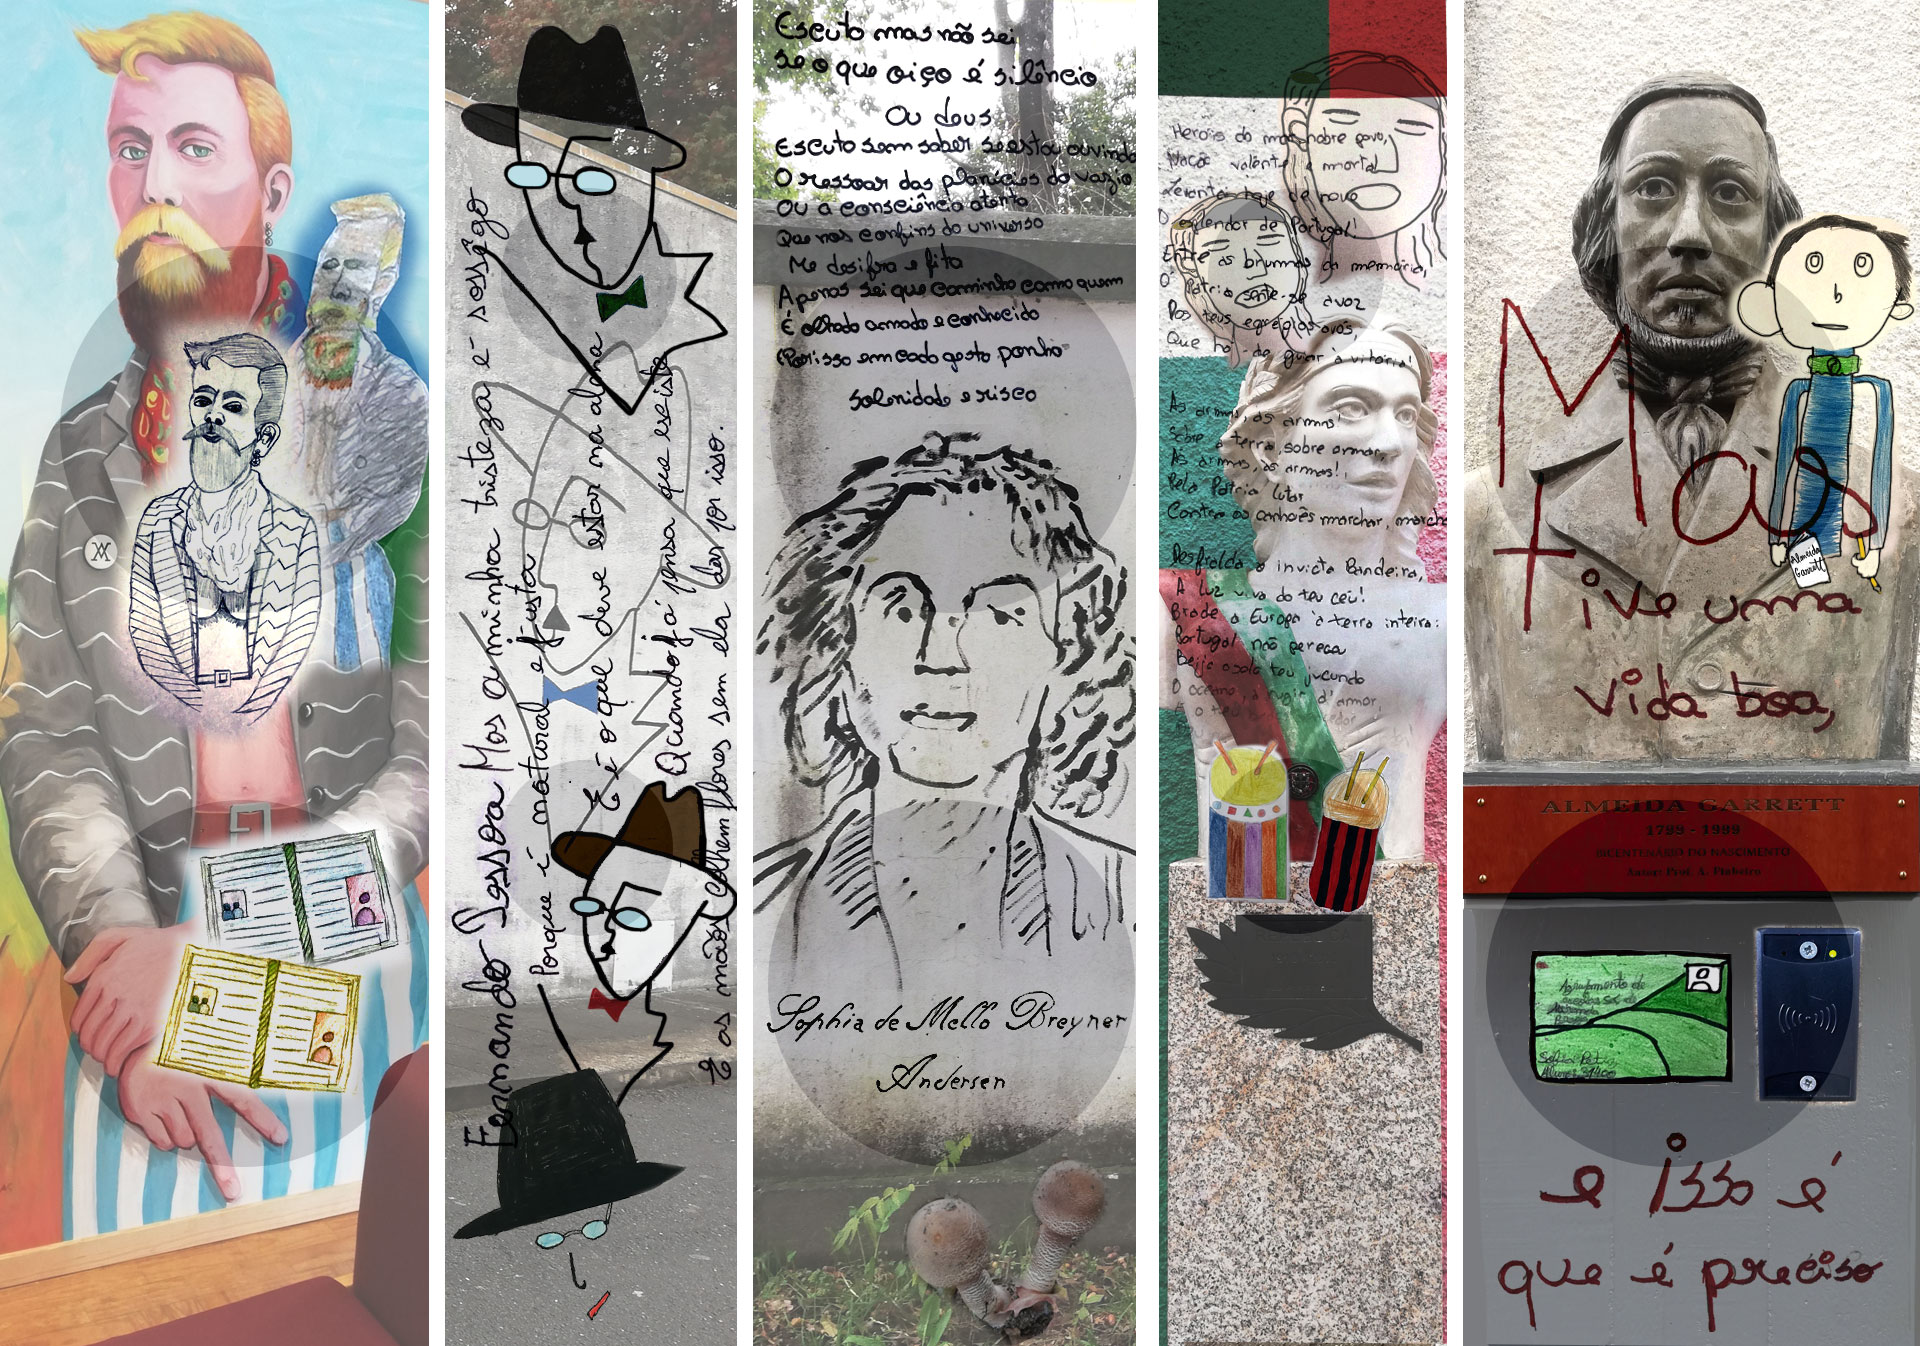 Fernando Pessoa
Mas a minha tristeza é sossêgo
Porque é natural e justa
E é o que deve estar na alma
Quando já pensa que existe
E as mãos colhem flores sem ela dar por isso.
Escuto mas não sei
se o que oiço é silêncio
Ou deus
Escuto sem saber se estou ouvindo
O ressoar das planícies do vazio
Ou a consciência atenta
Que nos confins do universo
Me desifra e fita
Apenas sei que caminho como quem
É olhado amado e conhecido
Por isso em cada gesto ponho
solenidade e risco
Sophia de Mello Breyner
Andersen
Herois do mar, nobre povo,
Nação valente e mortal
Levantai hoje de novo
O esplendor de Portugal!
Entre as brumas da memória,
Ó Patria sente-se a voz
Dos teus egrégios avós,
Que há-de guiar à vitória!
Às armas, às armas!
Sobre a terra, sobre o mar,
Às armas, às armas!,
Pela Patria lutar
Contra os canhões marchar, marchar
Desfralda a invicta Bandeira,
À luz viva do teu ceu!
Brade a Europa à terra inteira:
Portugal não pereceu
Beija o solo teu jucundo
O oceano, a rugir d'amor,
E o teu
Mas
Almeida
Garrett
tive uma
vida boa,
ALMEIDA GARRETT
1799 - 1999
BICENTENÁRIO DO NASCIMENTO
Autor: Prof. A. Pinheiro
Agrupamento de
escolas
e isso é
que é preciso